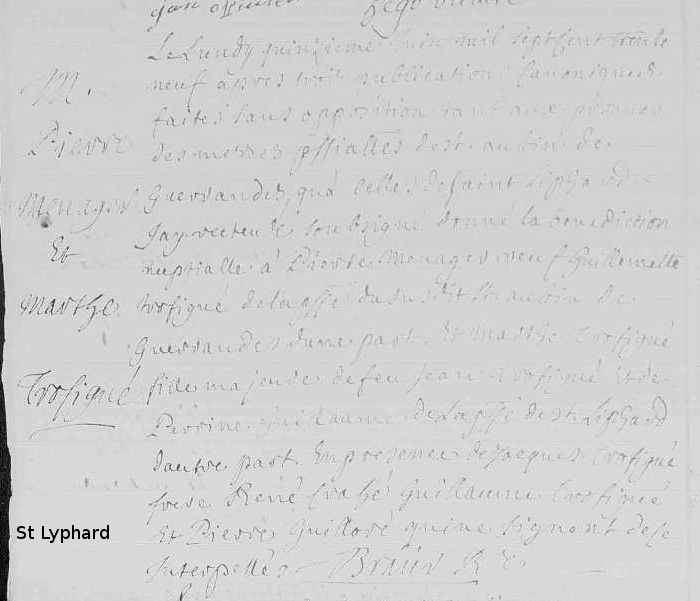 M.
Pierre
Menager
Et
Marthe
Trofigué
Le Lundy quinzieme Juin mil sept cent trente
neuf âpres trois publications Canoniques
faites sans opposition tant aux prones
des messes pssialles de st. aubin de
Guerrandes, qu'a celles de Saint Liphard
Jay recteur soubsigné donné la benediction
nuptialle à Pierre Menager veuf Guillemette
trofigué de la psse du susdit St. aubin de
Guerrandes d'une part, Et Marthe Trofigué
fille majeure de feu Jean Trofigué Et de
Perrine Guillaume de la psse de st. Liphard
dautre part. En presence de Jacques Trofigué
frere René Guillaume Trofigué
Et Pierre Guilloré qui ne signent de ce
Interpellés
St Lyphard